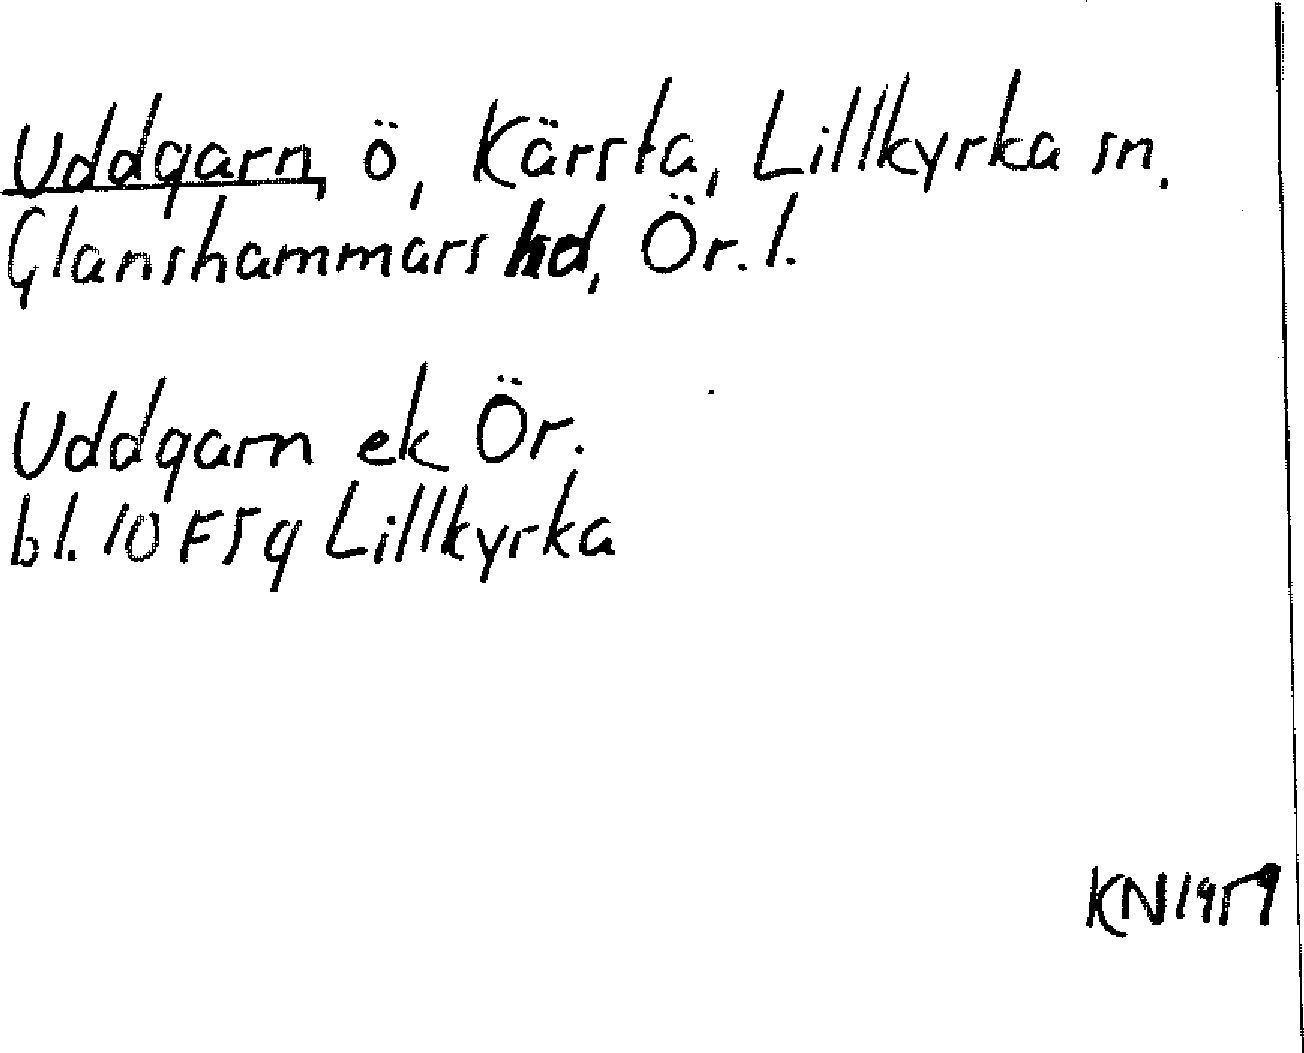 Uddgarn, ö, Kärsta, Lillkyrka sn.
Glanshammars hd, Ör. l.
Uddgarn ek Ör.
bl. 10F5g Lillkyrka
KN1959